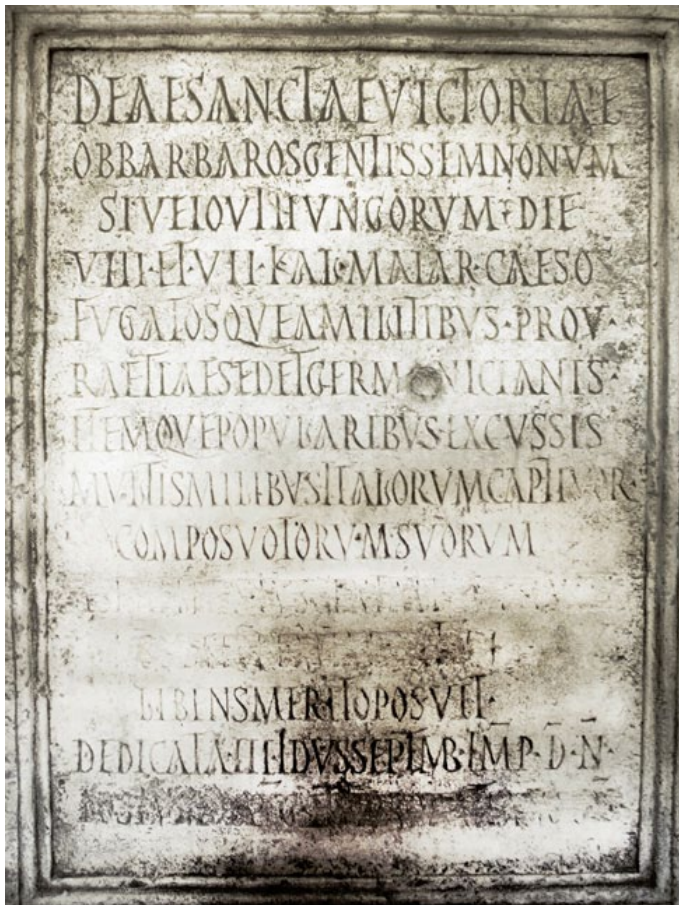 DEAE SANCTAE VICTORIAE
OB BARBAROS GENTIS SEMNONVM
SIVE IOVTHVNGORVM DIE
VIII·ET·VII·KAL·MAIAR·CAESOS
FVGATOSQVE A MILITIBVS·PROV·
RAETIAE SED ET GERMANICIANIS·
ITEMQVE POPVLARIBVS·EXCVSSIS
MVLTIS MILIBVS ITALORVM CAPTIVOR·
COMPOS VOTORVM·SVORVM
LIBENS MERITO POSVIT·
DEDICATA·III·IDVS SEPTEMB·IMP·D·N·